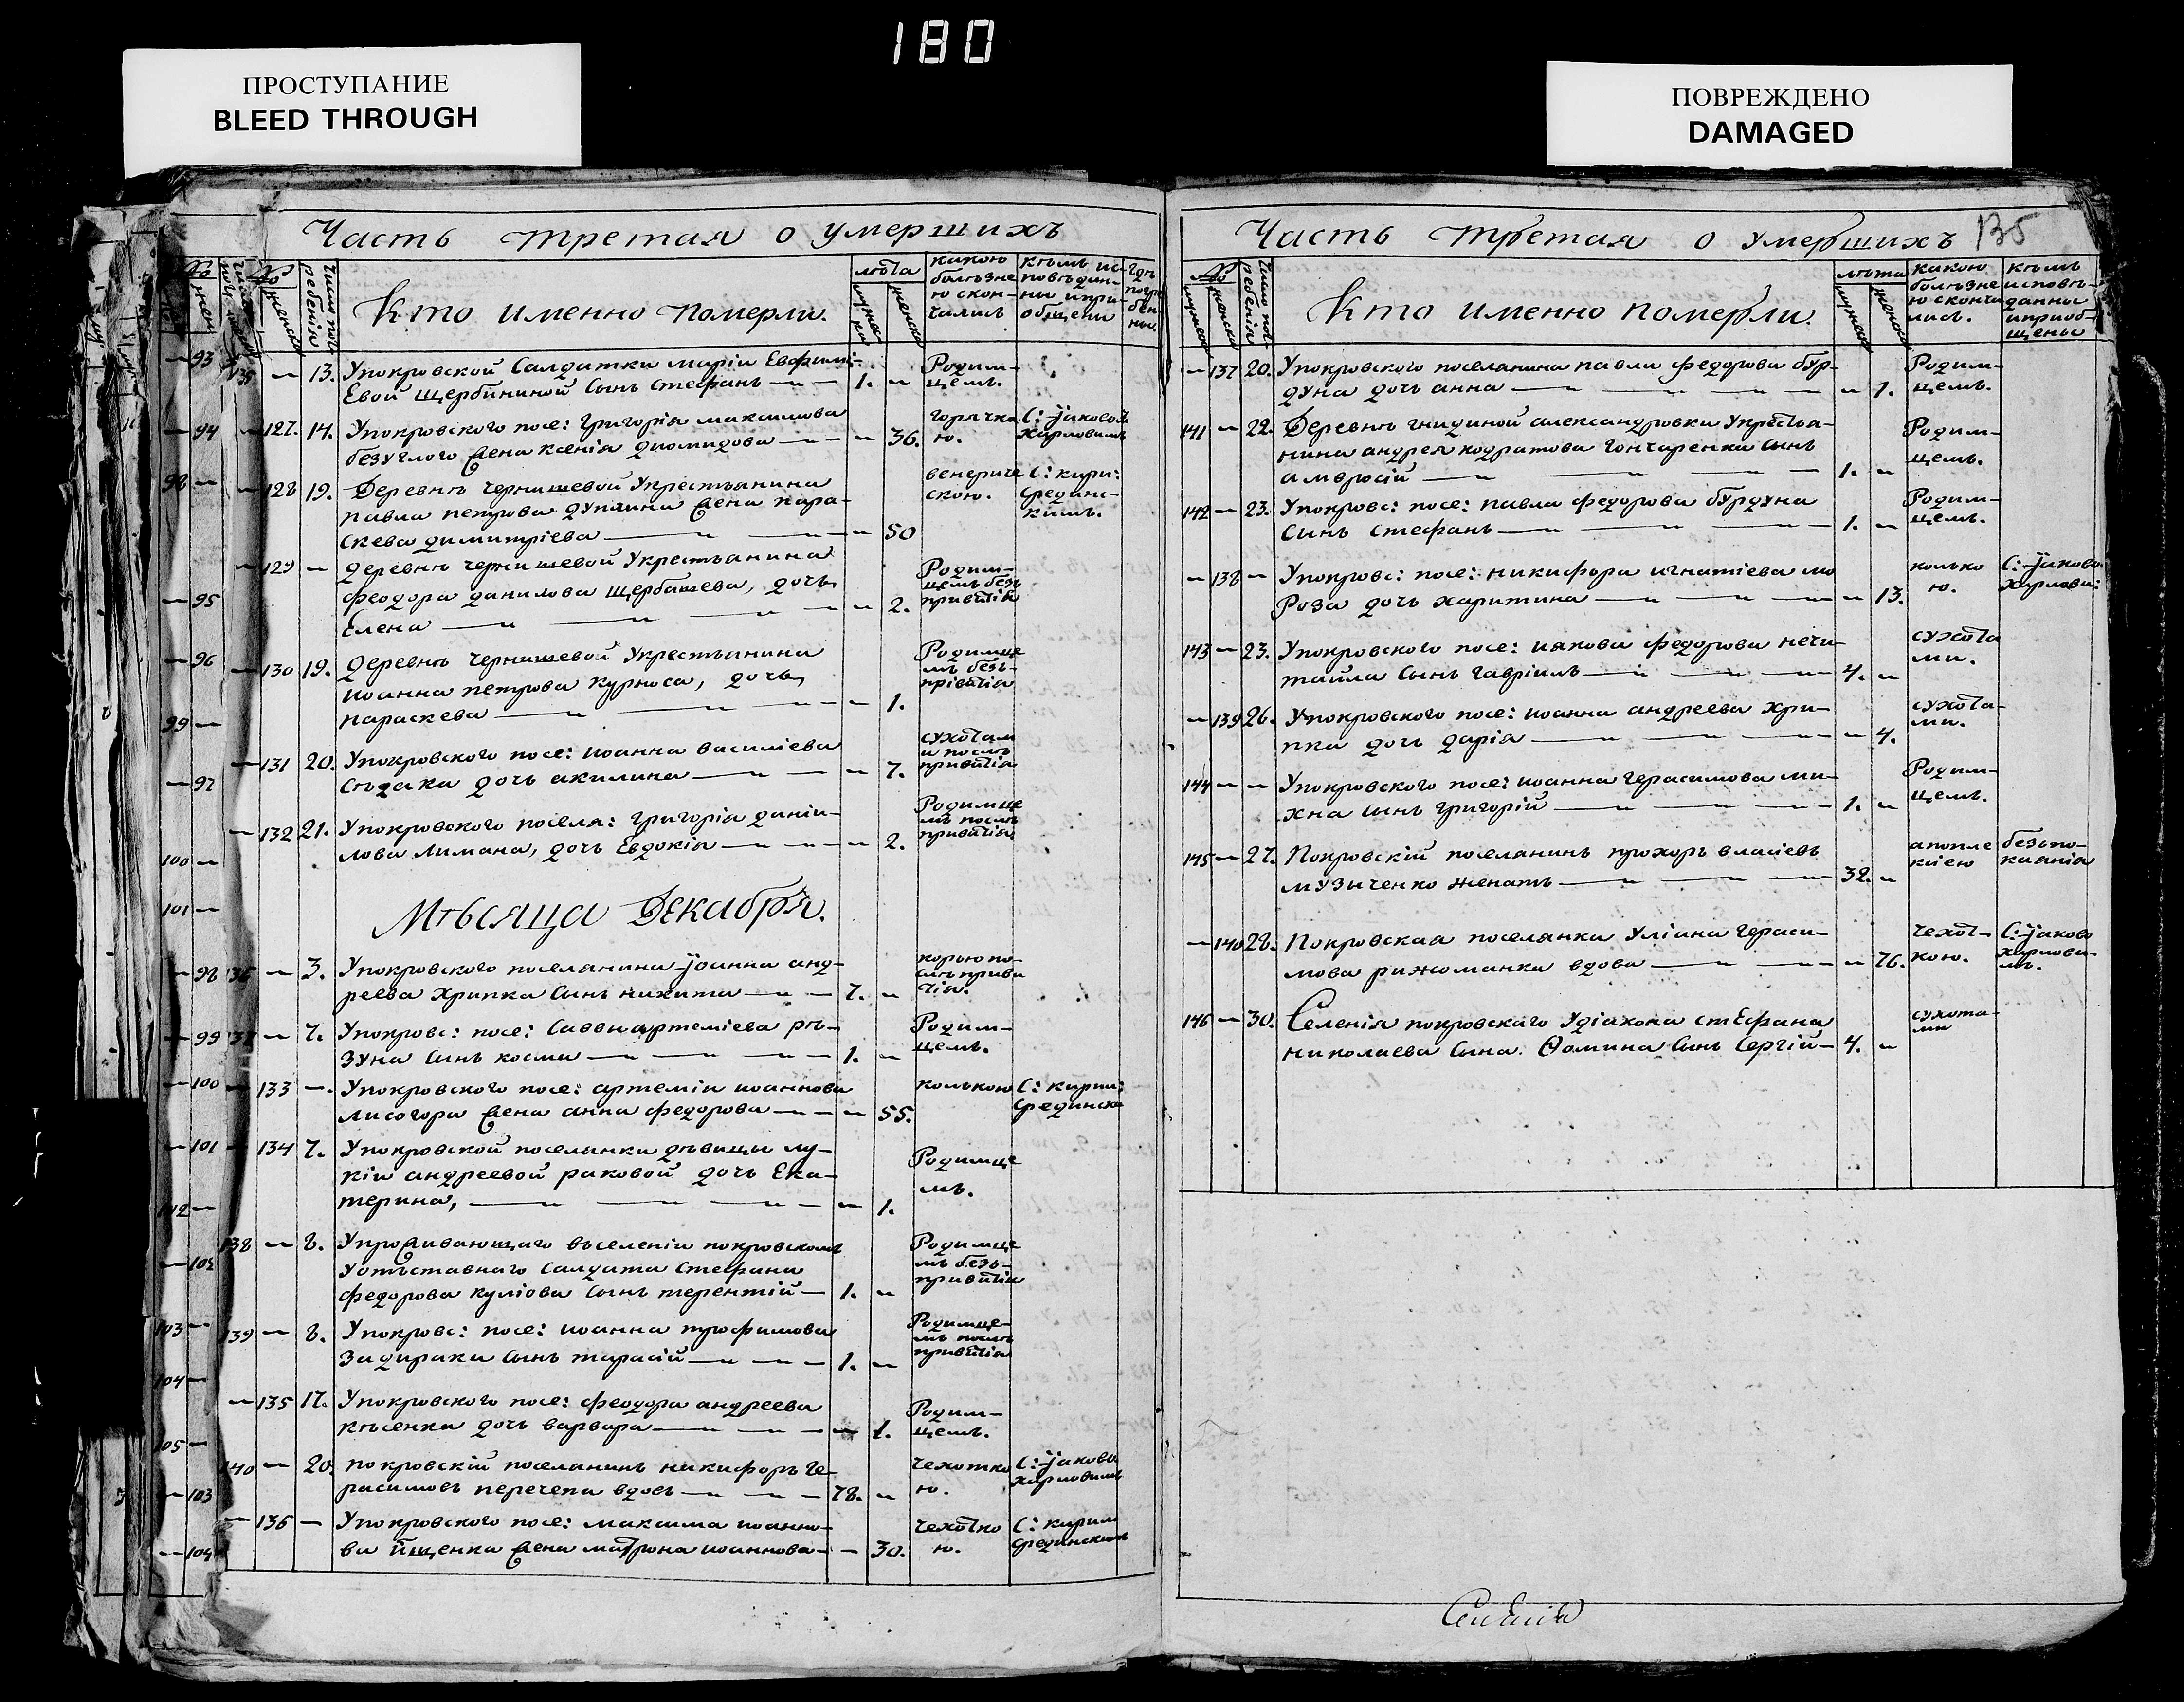 180
ПРОСТУПАНИЕ
BLEED THROUGH
ПОВРЕЖДЕНО
DAMAGED
Часть третая о умершихъ
№
женска
Число пог-
ребенія
Кто именно померли.
лѣта
мужес
женска
какою
болѣзне
ю скон-
чались
кѣмъ ис-
повѣдан-
ни и прі-
общени
гдѣ
погре
бен-
ны.
93 — 13. Упокровской Салдатки маріи Евфимі-
Евой щербининой Сынъ стефанъ — 1. — Родим-
цемъ.
94 — 127. 14. Упокровского посе: григорія максимова
безуглого жена ксенія диомидова — 36. горячко
ю. С: Іаковомъ
Харловимъ
98 — 128 19. Деревнѣ чернишевой Укрестьянина
павла петрова дупліна жена пара-
скева димитріева — 50 венериче
скою. С: кири:
Срединс-
кимъ.
129 — деревнѣ чернишевой Укрестьянина
95 феодора данилова щербашева, дочь
Елена — 2. Родим-
цемъ безъ
привитія
96 — 130 19. деревнѣ чернишевой Укрестьянина
иоанна петрова курноса, дочь
параскева — 1. Родимце
мъ безъ-
привитія
99 —
131 20. Упокровского посе: иоанна василіева
97 Сѣдака дочь акилина — 7. сухотам
и послѣ
привитія
132 21. Упокровского посела: григорія даніи-
100 — лова лимана, дочь Евдокія — 2. Родимце
мъ послѣ
привитія
101 —
Мѣсяца Декабря.
98 136 — 3. Упокровского поселанина Іоанна анд-
реева хрипка сынъ никита — 7. — корью по-
слѣ приви
тія.
99 137 — 7. Упокровс: посе: Саввы артеміева рѣ-
зуна сынъ косма — 1. — Родим-
цемъ.
100 — 133 — Упокровского посе: артеміи иоаннова
лисогора жена анна федорова — 55. колькою С: кирил:
Срединско
101 — 134 7. Упокровской поселянки дѣвицы лу-
кіи андреевой раковой дочь Ека-
102 — терина, — 1. Родимце
мъ.
138 — 8. Упроживающаго вселеніи покровскомъ
102 Уотъставнаго Салдата Стефана
федорова куліова сынъ терентій — 1. — Родимце
мъ безъ-
привитія
103 — 139 — 8. Упокровс: посе: иоанна трофимова
задирака сынъ тарасій — 1. — Родимце-
мъ послѣ
привитія
104 —
135 17. Упокровского посе: феодора андреева
105 — кѣсенка дочь варвара — 1. Родим-
цемъ.
140 — 20. покровскій поселанинъ никифоръ ге-
103 расимовъ перечепа вдовъ — 78. — чехотко
ю. С: Іаково
харловимъ
136 — Упокровского посе: максима иоанно-
104 ва йщенка жена матрона иоаннова — 30. чехотко
ю. С: кирил
Срединскимъ
Часть третая о умершихъ 135
№
мужеска
женска
Число пог-
ребенія
Кто именно померли.
лѣта
мужеск
женска
какою
болѣзне
ю сконча
лись.
кѣмъ
исповѣ-
данны
и приоб-
щены
— 137 20. Упокровского поселанина павла федорова бур-
дуна дочь анна — 1. Родим-
цемъ.
141 — 22. Деревнѣ гнидиной александровки Укрестья-
нина андрея кодратова гончаренка сынъ
амвросій — 1. — Родим-
цемъ.
142 — 23. Упокровс: посе: павла федорова бурдуна
сынъ стефанъ — 1. — Родим-
цемъ.
— 138 — Упокровс: посе: никифора игнатіева мо
роза дочь харитина — 13. колько
ю. С: Іаково
харлови:
143 — 23. Упокровского посе: иакова федорова нечи-
таила сынъ гавріилъ — 4. — сухота
ми.
— 139 26. Упокровского посе: иоанна андреева хри-
пка дочь дарія — 4. сухота-
ми.
144 — — Упокровского посе: иоанна герасимова ми-
хна сынъ григорій — 1. — Родим-
цемъ.
145 — 27. Покровскій поселанинъ прохоръ власіевъ
музиченко женатъ — 32. — апопле
ксіею безъ по-
каанія
— 140 28. Покровская поселянка Уліана гераси-
мова рижоманка вдова — 76. чехот-
кою. С: Іаково
харлови-
мъ.
146 — 30. Селенія покровскаго Удіакона стЕфана
николаева Сына Ѳомина Сынъ Сергій — 4. — сухота-
ми